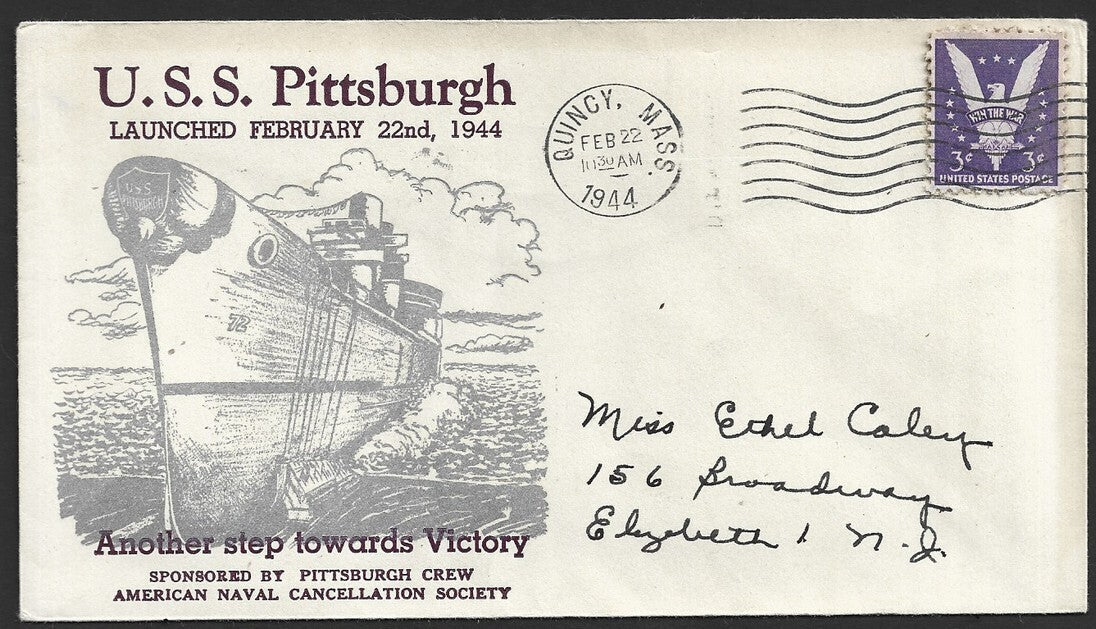 U.S.S. Pittsburgh
LAUNCHED FEBRUARY 22nd, 1944
U·S·S
PITTSBURGH
72
Another step towards Victory
SPONSORED BY PITTSBURGH CREW
AMERICAN NAVAL CANCELLATION SOCIETY
QUINCY, MASS.
FEB 22
10 30 AM
1944
WIN THE WAR
3¢ 3¢
UNITED STATES POSTAGE
Miss Ethel Caley
156 Broadway
Elizabeth 1 N.J.